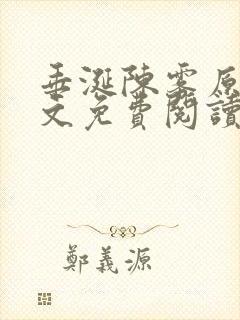 垂涎陳雾原
文免費閱讀
鄭義源